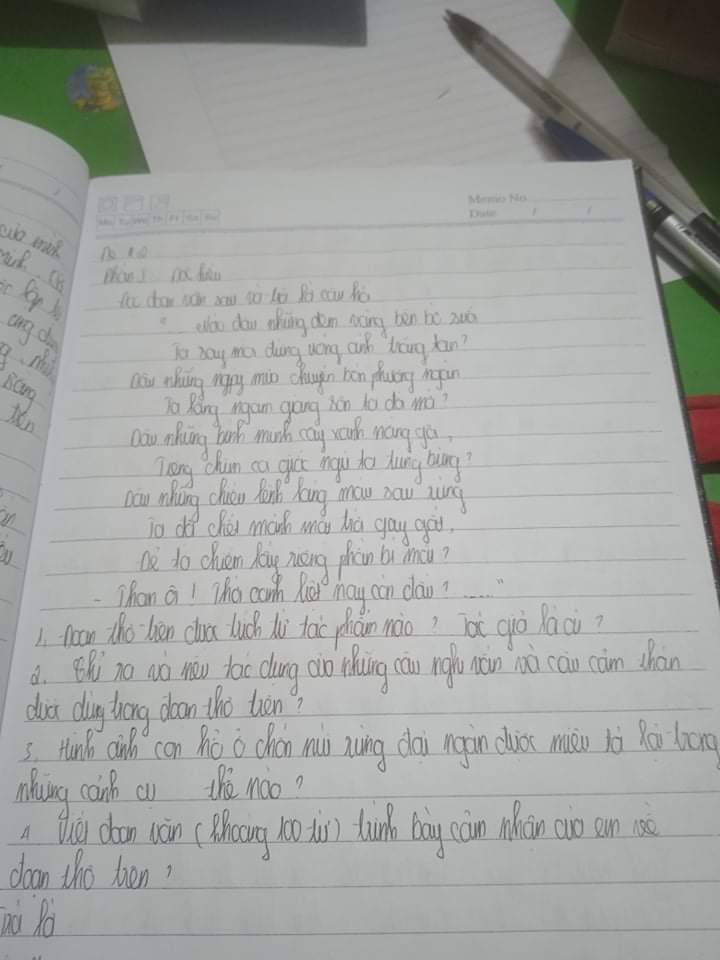 Memo No.
Date / /
Mo Tu We Th Fr Sa Su
của mình
mình
Phần I. Đọc hiểu
Đọc đoạn văn sau và trả lời câu hỏi
" Nào đâu những đêm vàng bên bờ suối
Ta say mồi đứng uống ánh trăng tan?
Đâu những ngày mưa chuyển bốn phương ngàn
Ta lặng ngắm giang sơn ta đổi mới?
Đâu những bình minh cây xanh nắng gội,
Tiếng chim ca giấc ngủ ta tưng bừng?
Đâu những chiều lênh láng máu sau rừng
Ta đợi chết mảnh mặt trời gay gắt,
Để ta chiếm lấy riêng phần bí mật?
- Than ôi! Thời oanh liệt nay còn đâu? ....."
1. Đoạn thơ trên được trích từ tác phẩm nào? Tác giả là ai?
2. Chỉ ra và nêu tác dụng của những câu nghi vấn và câu cảm thán
được dùng trong đoạn thơ trên?
3. Hình ảnh con hổ ở chốn núi rừng đại ngàn được miêu tả lại trong
những cảnh cụ thể nào?
4 Viết đoạn văn (khoảng 100 từ) trình bày cảm nhận của em về
đoạn thơ trên?
Trả lời